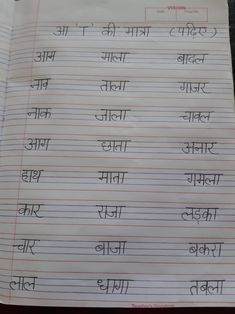 आ 'ा' की मात्रा (पढ़िए)
आम माला बादल
नाव ताला गाजर
नाक जाला चावल
आग छाता अनार
हाथ माता गमला
कार राजा लड़का
चार बाजा बकरा
लाल धागा तबला